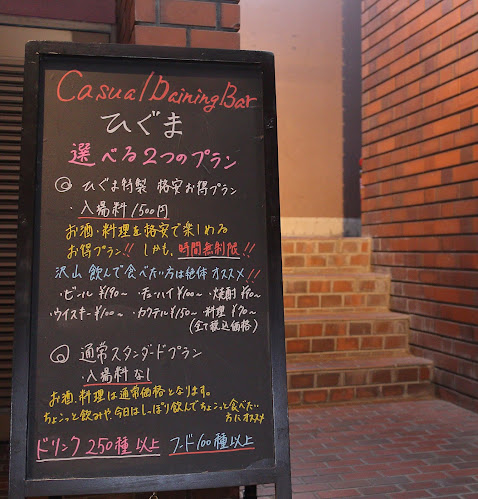 Casual Daining Bar
ひぐま
選べる2つのプラン
◎ ひぐま特製 格安お得プラン
・入場料1500円
お酒・料理を格安で楽しめる
お得プラン!! しかも、時間無制限!!
沢山 飲んで食べたい方は絶体オススメ!!
・ビール ¥190〜 ・チューハイ ¥100〜 ・焼酎 ¥90〜
・ウイスキー ¥100〜 ・カクテル ¥150〜 ・料理 ¥90〜
(全て税込価格)
◎ 通常スタンダードプラン
・入場料 なし
お酒、料理は通常価格となります。
ちょこっと飲みや、今日はしっぽり飲んでちょこっと食べたい
方にオススメ
ドリンク 250種以上 フード100種以上